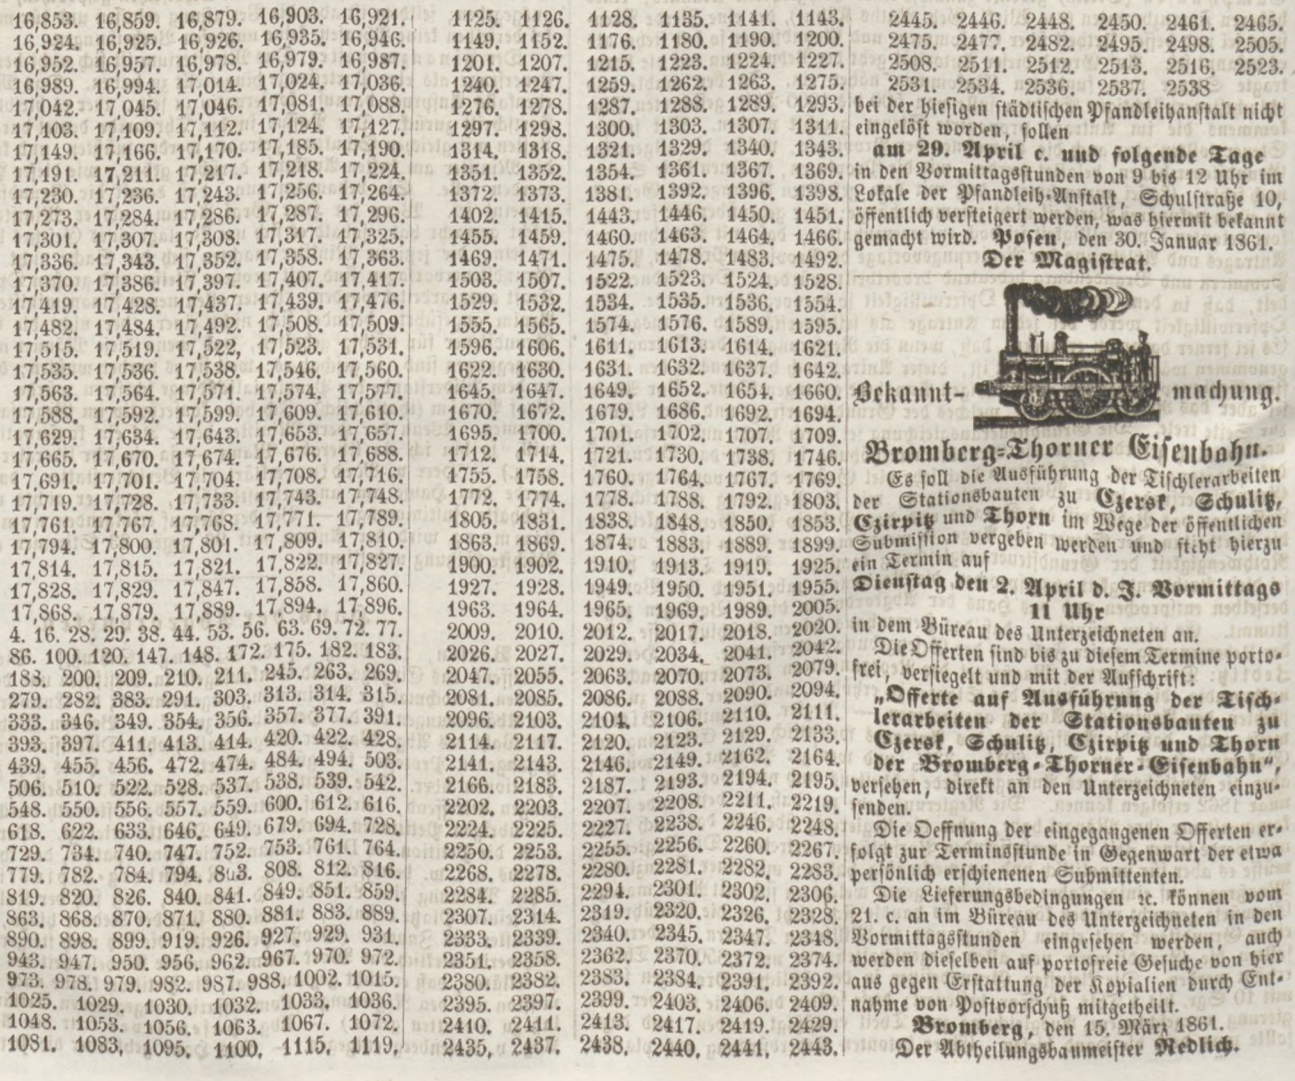 16,853. 16,859. 16,879. 16,903. 16,921.
16,924. 16,925. 16,926. 16,935. 16,946.
16,952. 16,957. 16,978. 16,979. 16,987.
16,989. 16,994. 17,014. 17,024. 17,036.
17,042. 17,045. 17,046. 17,081. 17,088.
17,103. 17,109. 17,112. 17,124. 17,127.
17,149. 17,166. 17,170. 17,185. 17,190.
17,191. 17,211. 17,217. 17,218. 17,224.
17,230. 17,236. 17,243. 17,256. 17,264.
17,273. 17,284. 17,286. 17,287. 17,296.
17,301. 17,307. 17,308. 17,317. 17,325.
17,336. 17,343. 17,352. 17,358. 17,363.
17,370. 17,386. 17,397. 17,407. 17,417.
17,419. 17,428. 17,437. 17,439. 17,476.
17,482. 17,484. 17,492. 17,508. 17,509.
17,515. 17,519. 17,522, 17,523. 17,531.
17,535. 17,536. 17,538. 17,546. 17,560.
17,563. 17,564. 17,571. 17,574. 17,577.
17,588. 17,592. 17,599. 17,609. 17,610.
17,629. 17,634. 17,643. 17,653. 17,657.
17,665. 17,670. 17,674. 17,676. 17,688.
17,691. 17,701. 17,704. 17,708. 17,716.
17,719. 17,728. 17,733. 17,743. 17,748.
17,761. 17,767. 17,768. 17,771. 17,789.
17,794. 17,800. 17,801. 17,809. 17,810.
17,814. 17,815. 17,821. 17,822. 17,827.
17,828. 17,829. 17,847. 17,858. 17,860.
17,868. 17,879. 17,889. 17,894. 17,896.
4. 16. 28. 29. 38. 44. 53. 56. 63. 69. 72. 77.
86. 100. 120. 147. 148. 172. 175. 182. 183.
188. 200. 209. 210. 211. 245. 263. 269.
279. 282. 383. 291. 303. 313. 314. 315.
333. 346. 349. 354. 356. 357. 377. 391.
393. 397. 411. 413. 414. 420. 422. 428.
439. 455. 456. 472. 474. 484. 494. 503.
506. 510. 522. 528. 537. 538. 539. 542.
548. 550. 556. 557. 559. 600. 612. 616.
618. 622. 633. 646. 649. 679. 694. 728.
729. 734. 740. 747. 752. 753. 761. 764.
779. 782. 784. 794. 803. 808. 812. 816.
819. 820. 826. 840. 841. 849. 851. 859.
863. 868. 870. 871. 880. 881. 883. 889.
890. 898. 899. 919. 926. 927. 929. 931.
943. 947. 950. 956. 962. 967. 970. 972.
973. 978. 979. 982. 987. 988. 1002. 1015.
1025. 1029. 1030. 1032. 1033. 1036.
1048. 1053. 1056. 1063. 1067. 1072.
1081. 1083, 1095. 1100, 1115, 1119,
1125. 1126. 1128. 1135. 1141. 1143.
1149. 1152. 1176. 1180. 1190. 1200.
1201. 1207. 1215. 1223. 1224. 1227.
1240. 1247. 1259. 1262. 1263. 1275.
1276. 1278. 1287. 1288. 1289. 1293.
1297. 1298. 1300. 1303. 1307. 1311.
1314. 1318. 1321. 1329. 1340. 1343.
1351. 1352. 1354. 1361. 1367. 1369.
1372. 1373. 1381. 1392. 1396. 1398.
1402. 1415. 1443. 1446. 1450. 1451.
1455. 1459. 1460. 1463. 1464. 1466.
1469. 1471. 1475. 1478. 1483. 1492.
1503. 1507. 1522. 1523. 1524. 1528.
1529. 1532. 1534. 1535. 1536. 1554.
1555. 1565. 1574. 1576. 1589. 1595.
1596. 1606. 1611. 1613. 1614. 1621.
1622. 1630. 1631. 1632. 1637. 1642.
1645. 1647. 1649. 1652. 1654. 1660.
1670. 1672. 1679. 1686. 1692. 1694.
1695. 1700. 1701. 1702. 1707. 1709.
1712. 1714. 1721. 1730. 1738. 1746.
1755. 1758. 1760. 1764. 1767. 1769.
1772. 1774. 1778. 1788. 1792. 1803.
1805. 1831. 1838. 1848. 1850. 1853.
1863. 1869. 1874. 1883. 1889. 1899.
1900. 1902. 1910. 1913. 1919. 1925.
1927. 1928. 1949. 1950. 1951. 1955.
1963. 1964. 1965. 1969. 1989. 2005.
2009. 2010. 2012. 2017. 2018. 2020.
2026. 2027. 2029. 2034. 2041. 2042.
2047. 2055. 2063. 2070. 2073. 2079.
2081. 2085. 2086. 2088. 2090. 2094.
2096. 2103. 2104. 2106. 2110. 2111.
2114. 2117. 2120. 2123. 2129. 2133.
2141. 2143. 2146. 2149. 2162. 2164.
2166. 2183. 2187. 2193. 2194. 2195.
2202. 2203. 2207. 2208. 2211. 2219.
2224. 2225. 2227. 2238. 2246. 2248.
2250. 2253. 2255. 2256. 2260. 2267.
2268. 2278. 2280. 2281. 2282. 2283.
2284. 2285. 2294. 2301. 2302. 2306.
2307. 2314. 2319. 2320. 2326. 2328.
2333. 2339. 2340. 2345. 2347. 2348.
2351. 2358. 2362. 2370. 2372. 2374.
2380. 2382. 2383. 2384. 2391. 2392.
2395. 2397. 2399. 2403. 2406. 2409.
2410. 2411. 2413. 2417. 2419. 2429.
2435, 2437. 2438. 2440, 2441, 2443.
2445. 2446. 2448. 2450. 2461. 2465.
2475. 2477. 2482. 2495. 2498. 2505.
2508. 2511. 2512. 2513. 2516. 2523.
2531. 2534. 2536. 2537. 2538
bei der hiesigen städtischen Pfandleihanstalt nicht
eingelöst worden, sollen
am 29. April c. und folgende Tage
in den Vormittagsstunden von 9 bis 12 Uhr im
Lokale der Pfandleih-Anstalt, Schulstraße 10,
öffentlich versteigert werden, was hiermit bekannt
gemacht wird. Posen, den 30. Januar 1861.
Der Magistrat.
Bekannt- machung.
Bromberg-Thorner Eisenbahn.
Es soll die Ausführung der Tischlerarbeiten
der Stationsbauten zu Czersk, Schulitz,
Czirpitz und Thorn im Wege der öffentlichen
Submission vergeben werden und steht hierzu
ein Termin auf
Dienstag den 2. April d. J. Vormittags
11 Uhr
in dem Büreau des Unterzeichneten an.
Die Offerten sind bis zu diesem Termine porto-
frei, versiegelt und mit der Aufschrift:
„Offerte auf Ausführung der Tisch-
lerarbeiten der Stationsbauten zu
Czersk, Schulitz, Czirpitz und Thorn
der Bromberg-Thorner-Eisenbahn",
versehen, direkt an den Unterzeichneten einzu-
senden.
Die Oeffnung der eingegangenen Offerten er-
folgt zur Terminsstunde in Gegenwart der etwa
persönlich erschienenen Submittenten.
Die Lieferungsbedingungen ꝛc. können vom
21. c. an im Büreau des Unterzeichneten in den
Vormittagsstunden eingesehen werden, auch
werden dieselben auf portofreie Gesuche von hier
aus gegen Erstattung der Kopialien durch Ent-
nahme von Postvorschuß mitgetheilt.
Bromberg, den 15. März 1861.
Der Abtheilungsbaumeister Redlich.